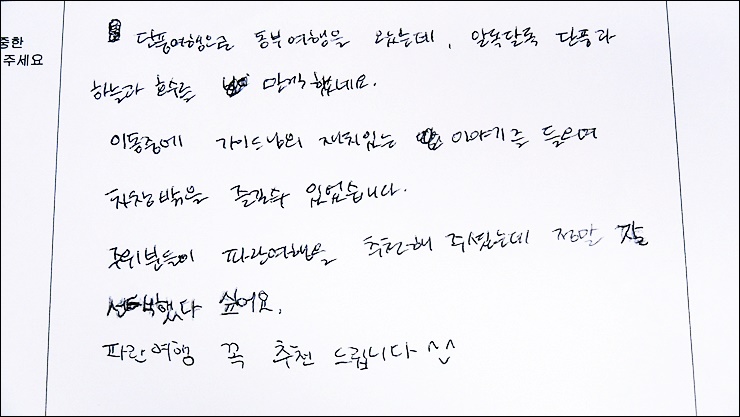 중한
주세요
단풍여행으로 동부여행을 왔는데, 알록달록 단풍과
하늘과 호수를 만끽했네요.
이동중에 가이드님의 재치있는 이야기를 들으며
차창밖을 즐길수 있었습니다.
주위분들이 파란여행을 추천해 주셨는데 정말 잘
선택했다 싶어요.
파란여행 꼭 추천 드립니다 ^^